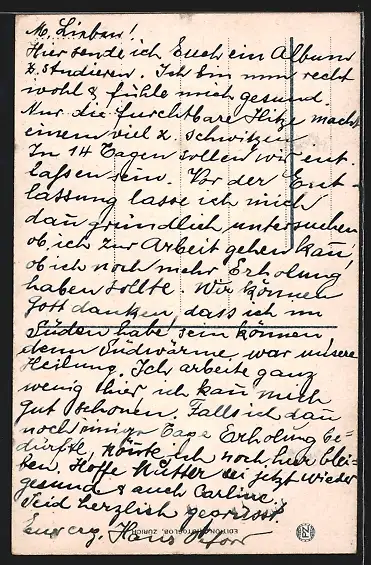 M. Lieben!
Hier sende ich Euch ein Album
z. studieren. Ich bin nun recht
wohl & fühle mich gesund.
Nur die furchtbare Hitze macht
einem viel z. schwitzen.
In 14 Tagen sollen wir ent-
lassen sein. Vor der Ent-
lassung lasse ich mich
dan̄ gründlich untersuchen
ob ich zur Arbeit gehen kan̄,
ob ich noch mehr Erholung
haben sollte. Wir können
Gott danken, dass ich im
Süden habe sein können
denn Südwärme war unsere
Heilung. Ich arbeite ganz
wenig hier ich kan̄ mich
gut schonen. Falls ich dan̄
noch einige Tage Erholung be-
dürfte, könnte ich noch hier blei-
ben. Hoffe Mutter sei jetzt wieder
gesund & auch Carline.
Seid herzlich gegrüsst
Euer erg. Hans
EDITION PHOTOGLOB, ZÜRICH